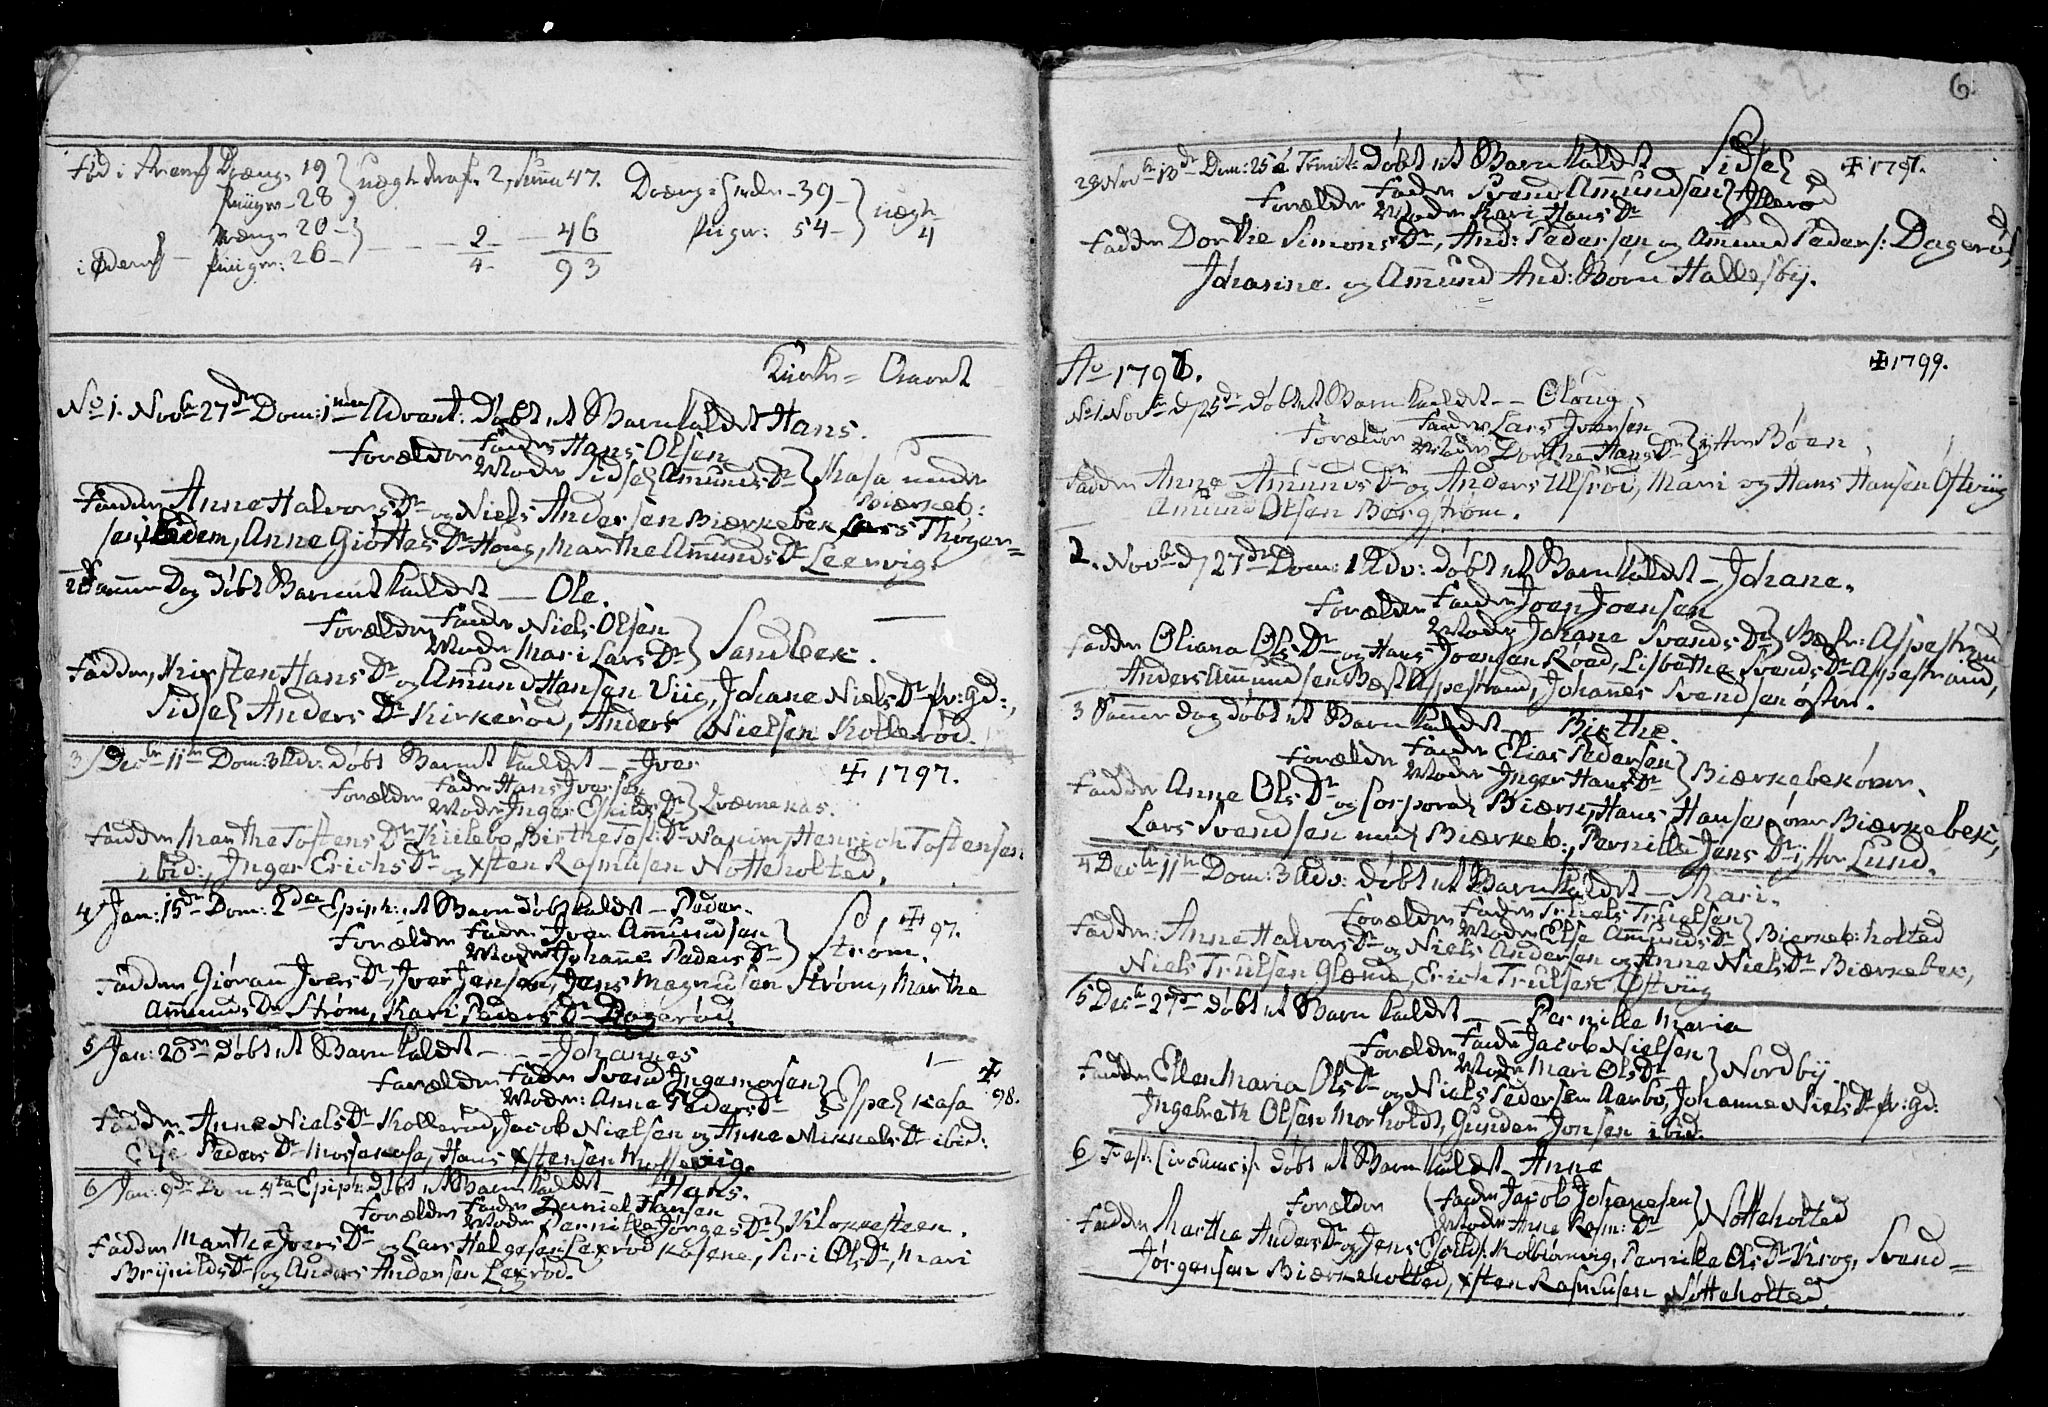 Fød i Aremk Dreng. 19 } uægte deraf 2, Suma 47. Drenge Suma 39 } uægte 4
Piiger 28
Dreng. 20
i Ødem. Piiger: 26 } 2 46 Piiger: 54
4 93
Kirke-Aaret
No 1. Novbr 27de Dom: 1ma Advent: døbt et Barn kaldet Hans.
Forældre Fader Hans Olsen
Moder Sidsel Amunds Dr } Kasa under Biørkeb:
Faddere Anne Halvors Dr og Niels Andersen Biørkebek, Lars Thoger=
sen ibidem, Anne Giøttes Dr Houg, Marthe Amunds Dr Leervig.
2 Samme Dag døbt Barnet kaldet — Ole.
Forældre Fader Niels Olsen
Moder Mari Lars Dr } Sandbek.
Faddere, Kirsten Hans Dr og Amund Hansen Viig, Johane Niels Dr Pr: Gd:,
Sidsel Anders Dr Kirkerød, Anders Nielsen Kollerød.
3 Decbr 11te Dom: 3 Adv: døbt Barnet kaldet — Iver ✝ 1797.
Forældre Fader Hans Iversen
Moder Inger Eskilds Dr } Qværnekas.
Faddere Marthe Tostens Dr Kirkebø, Birthe Tost: Dr Narim, Henrich Tostensen
ibid:, Inger Erichs Dr og Xsten Rasmusen Notteholted.
4 Jan: 15de Dom: 2da Epiph: et Barn døbt kaldet — Peder. ✝ 97.
Forældre Fader Iver Amundsen
Moder Johanne Peders Dr } Strøm.
Faddere Giøran Ivers Dr, Iver Jensen, Jens Magnusen Strøm, Marthe
Amunds Dr Strøm, Kari Peders Dr Dagerød.
5 Jan: 20de døbt et Barn kaldet — Johannes ✝ 98.
Forældre Fader Svend Ingemorsen
Moder: Anne Peders Dr } Espelkasa
Faddere Anne Niels Dr Kollerød, Jacob Nielsen og Anne Mikkels Dr ibid:
Else Peders Dr Mosekasa, Hans Xstensen
6 Jan: 9de Dom 4ta Epiph: døbt et Barn kaldet — Hans.
Forældre Fader Daniel Hansen
Moder Pernille Jørges Dr } Klokkesteen.
Faddere Marthe Ivers Dr og Lars Helgesen Lexrød Kasene, Siri Ols Dr, Mari
Brynilds Dr og Anders Andersen Lexrød.
6
28 Novbr 13de Dom: 25 à Trinit: døbt et Barn kaldet Sidsel ✝ 1797.
Forældre Fader Svend Amundsen
Moder Kari Hans Dr
Faddere Dorthe Simons Dr, And: Pedersen og Amund Peders: Dagerød,
Johanne og Amund And: Børn Hallesby.
Ao 1796. ✝ 1799.
No 1 Novbr d 25de døbt et Barn kaldet — Oloug.
Forældre Fader Lars Iversen
Moder Dorthe Hans Dr } ytter Bøen.
Faddere Anne Amunds Dr og Anders Ulsrød, Mari og Hans Hansen Østviig
Amund Olsen Bergstrøm.
2. Novbr d 27de Dom: 1 Adv: døbt et Barn kaldet — Johane.
Forældre Fader Joen Joensen
Moder Johane Svends Dr } Aspestrand
Faddere Oliana Ols Dr og Hans Joensen Røed, Lisbethe Svends Dr Aspestrand,
Anders Amundsen Væst Aspestrand, Johannes Svendsen østen.
3 Samme Dag døbt et Barn kaldet — Birthe.
Forældre Fader Elias Pedersen
Moder Inger Hans Dr } Biærkebek øvre.
Faddere Anne Ols Dr og Corporal Biærk, Hans Hansen øvre Biærkebek,
Lars Svendsen ned Biærkeb:, Pernille Jens Dr ytter Lund.
4 Decbr 11te Dom: 3 Adv: døbt et Barn kaldet — Mari.
Forældre Fader Truels Truelsen
Moder Else Amunds Dr } Bierkeb: holted
Faddere: Anne Halvors Dr og Niels Andersen og Anne Niels Dr Biærkebek,
Niels Trulsen Glæme, Erich Trulsen Østviig
5 Decbr 27de døbt et Barn kaldet — Pernille Maria
Forældre Fader Jacob Nielsen
Moder Mari Ols Dr } Nordby
Faddere Ellen Maria Ols Dr og Niels Pedersen Aarbo, Johanne Niels Dr Pr: Gd:
Ingebreth Olsen Morholdt, Gunder Jonsen ibid.
6 Fest: Circumcis: døbt et Barn kaldet — Anne
Forældre Fader Jacob Johanesen
Moder Anne Rasm: Dr } Notteholted
Faddere Marthe Anders Dr og Jens Eskilds: Kolbiørnvig, Pernille Ols Dr Krog, Svend=
Jørgensen Biærkeholted, Xsten Rasmusen Notteholted.